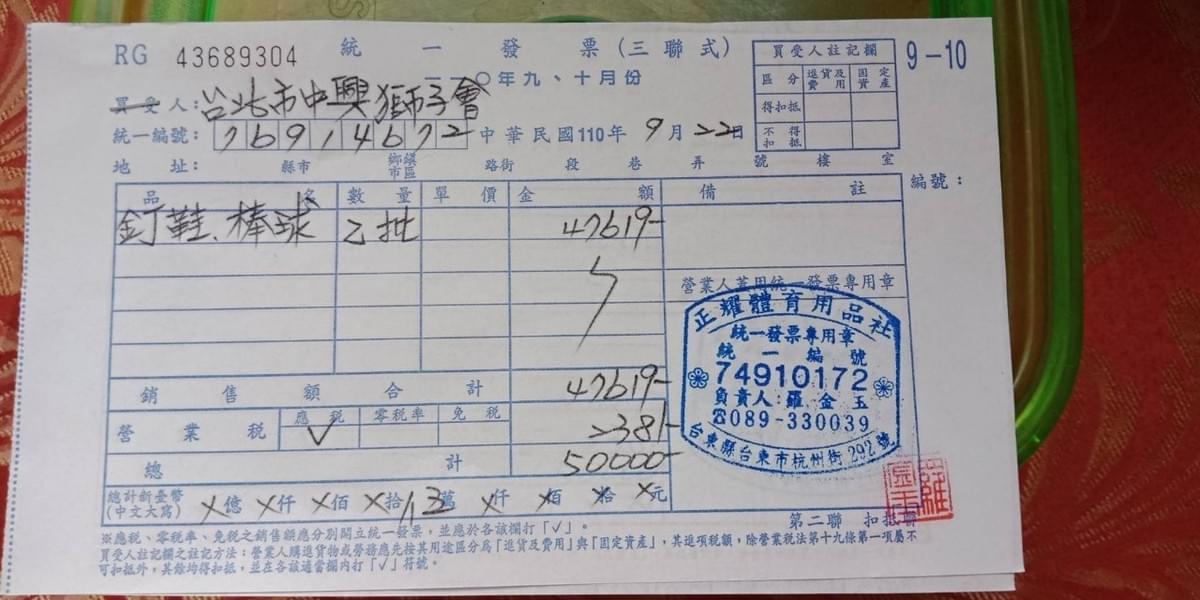 RG 43689304 統一發票(三聯式) 9-10
一一〇年九、十月份
買受人註記欄
區分 進貨及費用 固定資產
得扣抵
不得扣抵
買受人:台北市中興獅子會
統一編號: 76914672 中華民國110年 9月22日
地址: 縣市 鄉鎮市區 路街 段 巷 弄 號 樓 室
品名 數量 單價 金額 備註 編號:
釘鞋、棒球 乙批 47619-
營業人蓋用統一發票專用章
正耀體育用品社
統一發票專用章
統一編號
74910172
負責人:羅金玉
☎089-330039
台東縣台東市杭州街292號
銷售額合計 47619-
營業稅 應稅 ✓ 零稅率 免稅 2381-
總計 50000-
總計新臺幣(中文大寫) ×億 ×仟 ×佰 ×拾 伍萬 ×仟 ×佰 ×拾 ×元
羅金玉
第二聯 扣抵聯
※應稅、零稅率、免稅之銷售額應分別開立統一發票,並應於各該欄打「✓」。
買受人註記欄之註記方法:營業人購進貨物或勞務應先按其用途區分為「進貨及費用」與「固定資產」,其進項稅額,除營業稅法第十九條第一項屬不
可扣抵外,其餘均得扣抵,並在各該適當欄內打「✓」符號。